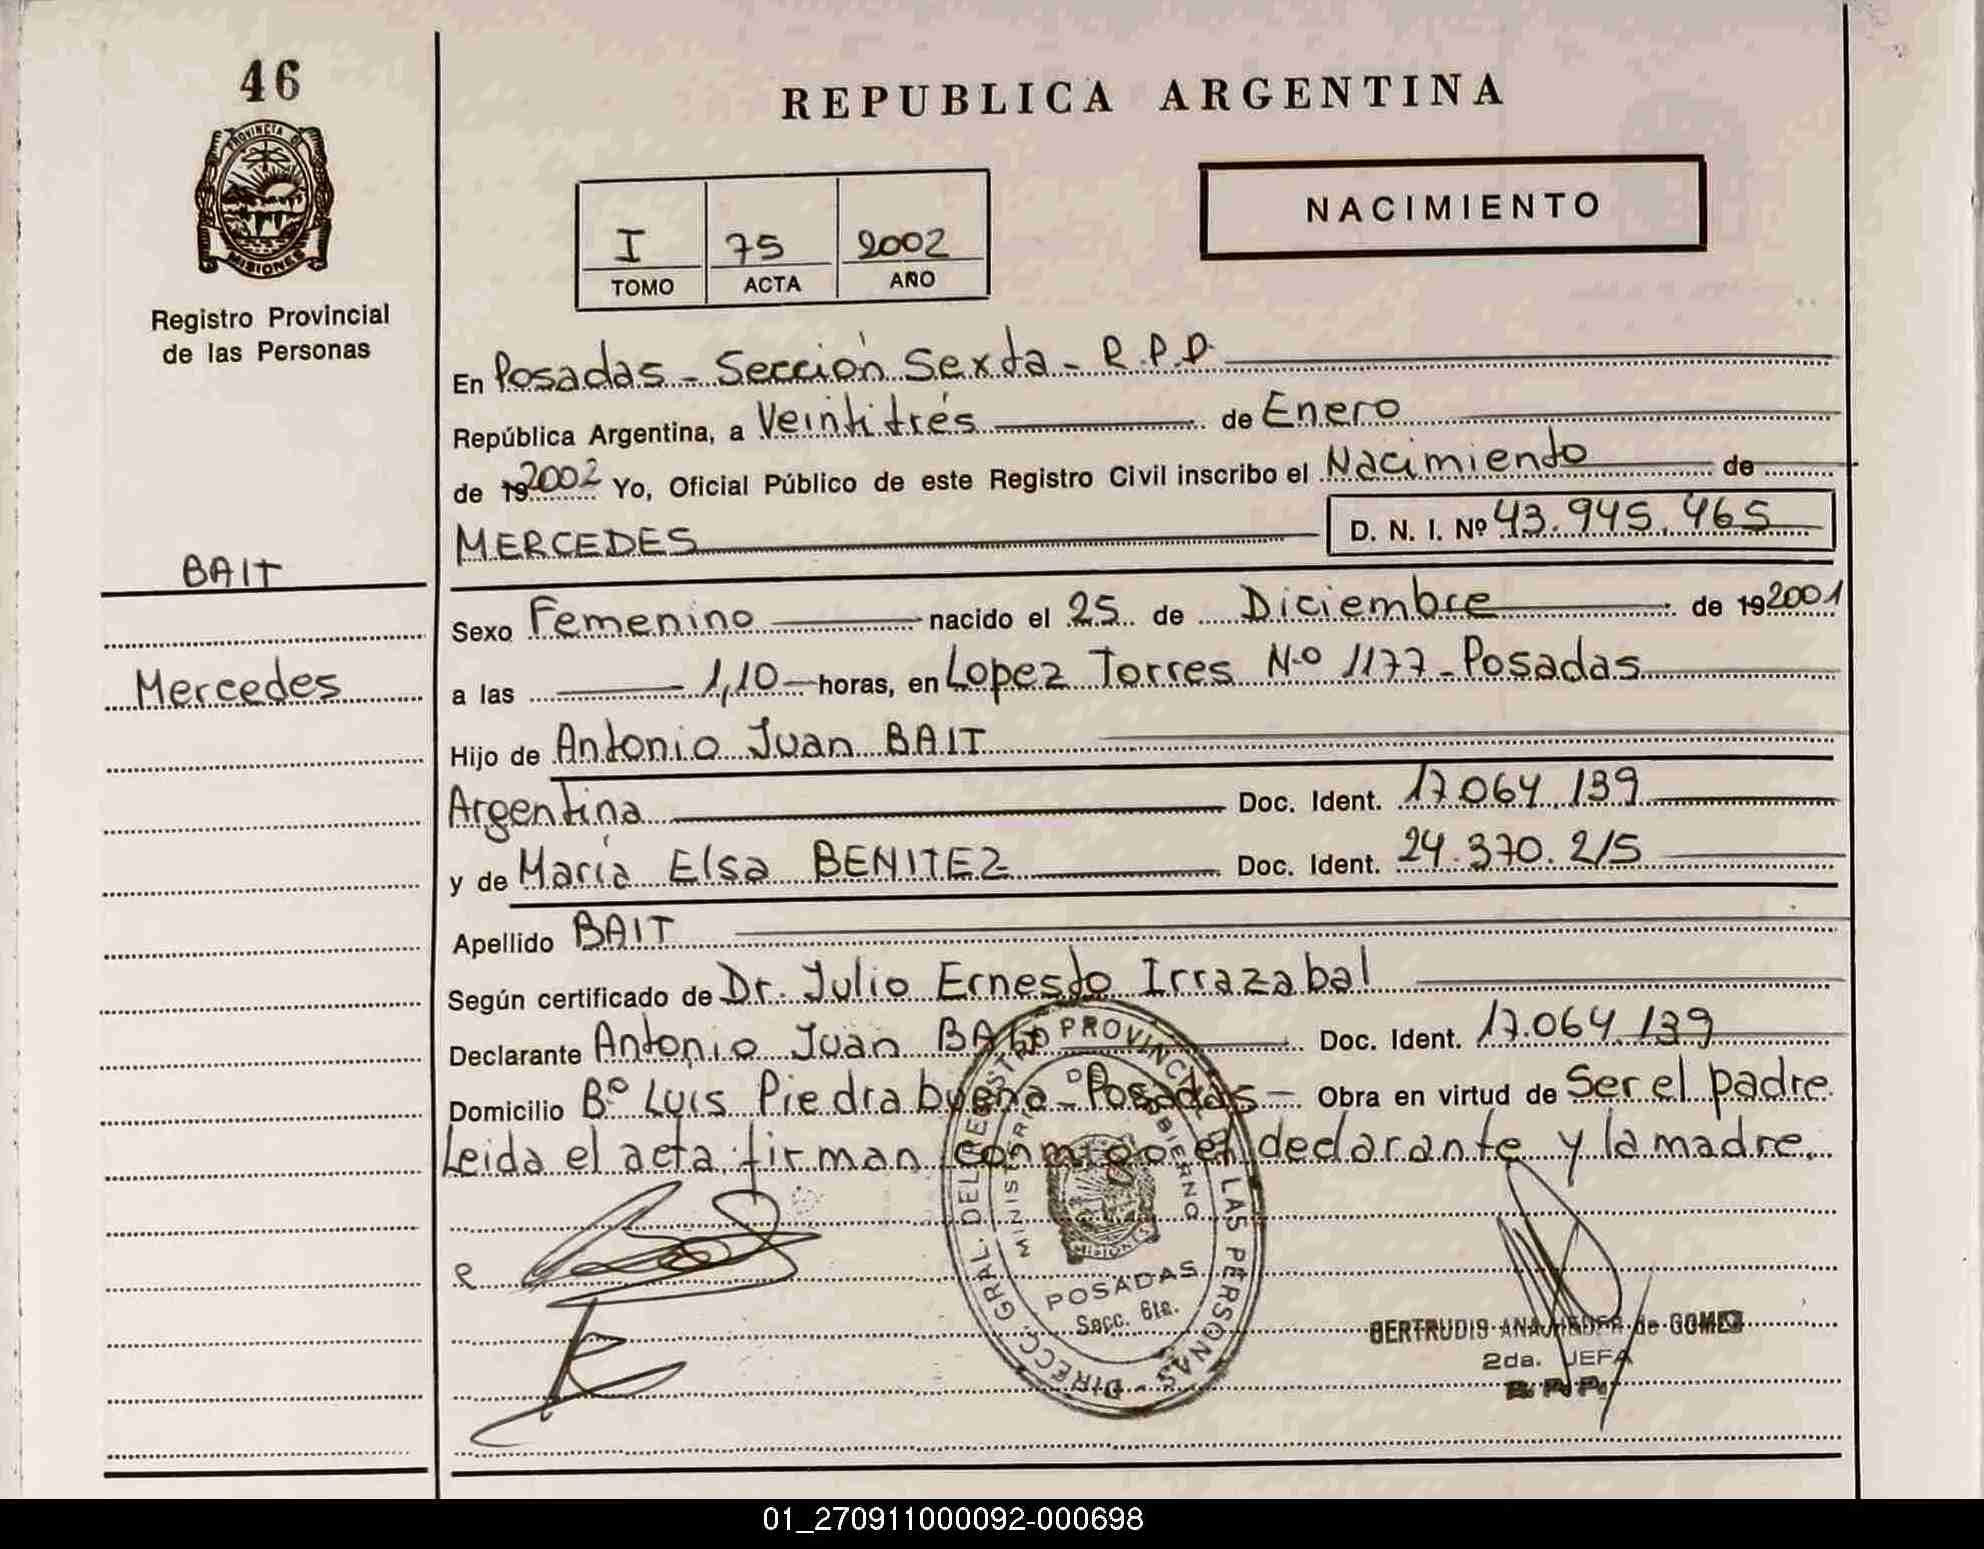 46
REPUBLICA ARGENTINA
PROVINCIA D
MISIONES
Registro Provincial
de las Personas
NACIMIENTO
I 75 2002
TOMO ACTA AÑO
En Posadas - Sección Sexta - R.P.P.
República Argentina, a Veintitrés de Enero
de 192002 Yo, Oficial Público de este Registro Civil inscribo el Nacimiento de
MERCEDES D. N. I. Nº 43.945.465
BAIT
Mercedes
Sexo Femenino nacido el 25 de Diciembre de 192001
a las 1,10 horas, en Lopez Torres N.º 1177 - Posadas
Hijo de Antonio Juan BAIT
Argentina Doc. Ident. 17.064.139
y de María Elsa BENITEZ Doc. Ident. 24.370.215
Apellido BAIT
Según certificado de Dr. Julio Ernesto Irrazabal
Declarante Antonio Juan BAIT Doc. Ident. 17.064.139
Domicilio Bº Luis Piedrabuena - Posadas - Obra en virtud de Ser el padre
Leida el acta firman conmigo el declarante y la madre.
DIRECC. GRAL. DEL REGISTRO PROVINCIAL DE LAS PERSONAS
MINISTERIO DE GOBIERNO
MISIONES
POSADAS
Secc. 6ta.
GERTRUDIS ANA de GOMEZ
2da. JEFA
R. P. P.
01_270911000092-000698